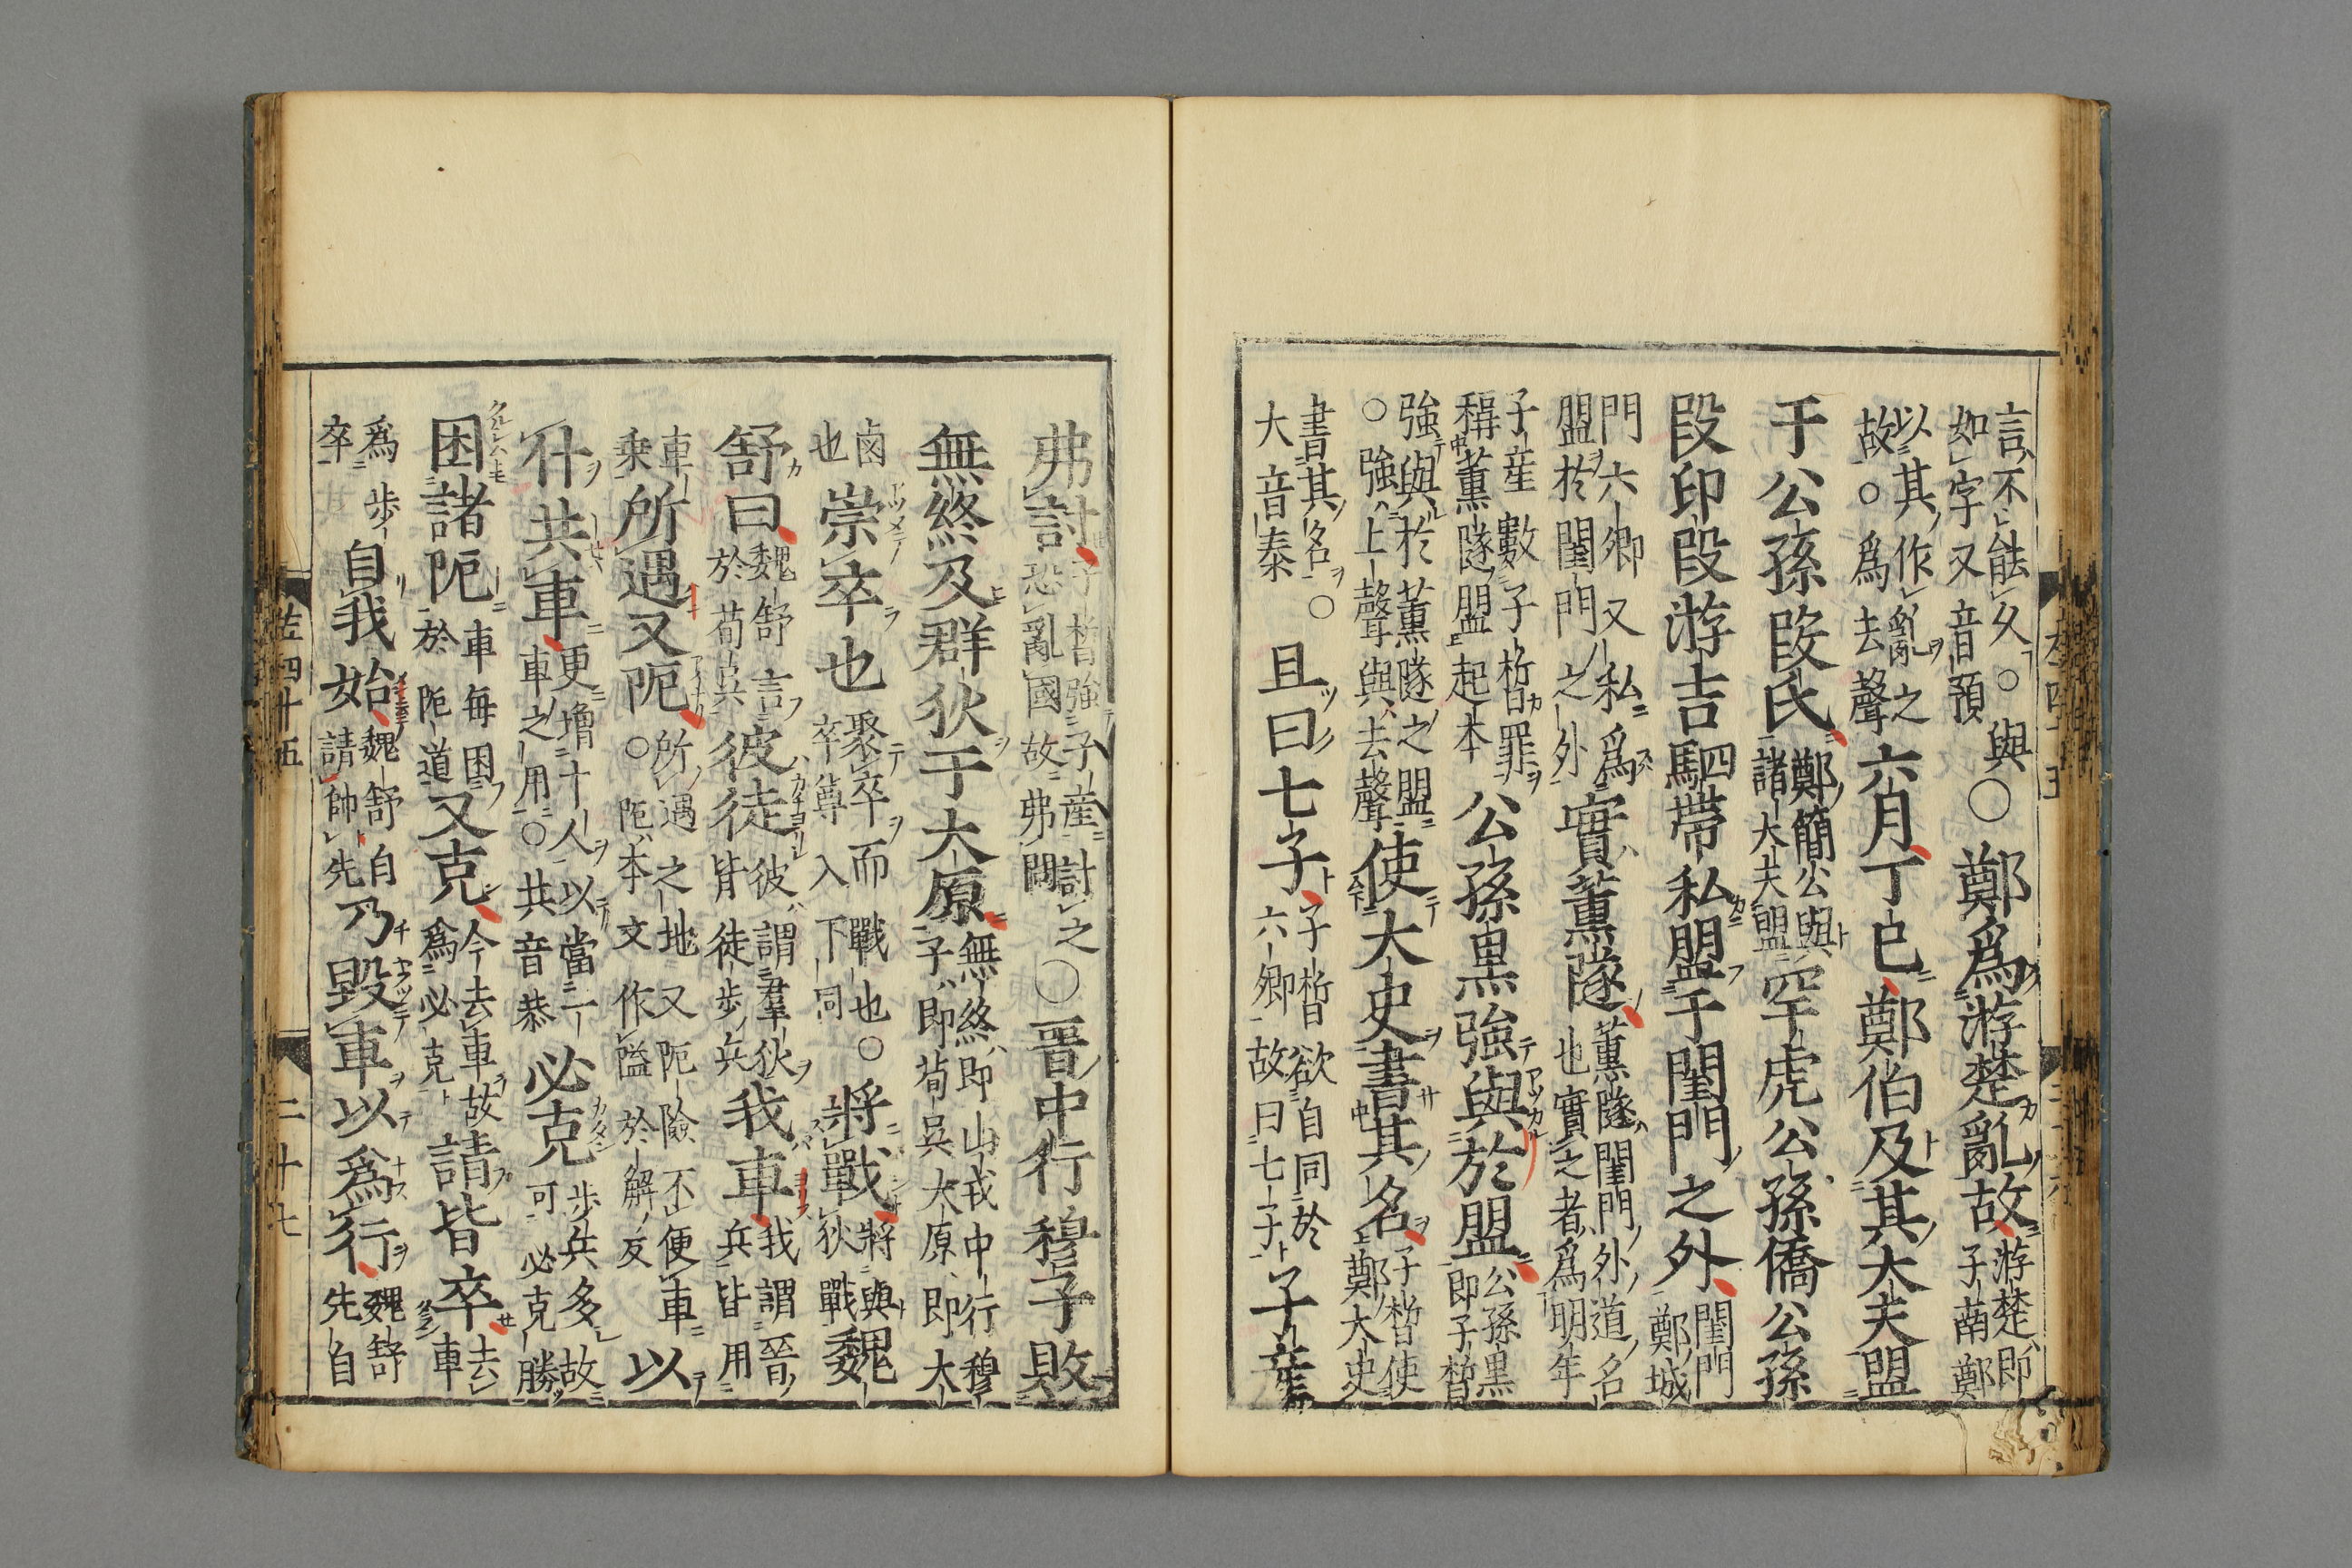 言不能久○與如字又音預○鄭爲游楚亂故游楚即子南鄭
以其作亂之故○爲去聲六月丁巳鄭伯及其大夫盟
于公孫段氏鄭簡公與諸大夫盟罕虎公孫僑公孫
段印段游吉駟帶私盟于閨門之外閨門鄭城
門六卿又私爲盟於閨門之外實薰隧薰隧閨門外道名也實之者爲明年
子産數子晳罪稱薰隧盟起本公孫黒強與於盟公孫黒即子晳
強與於薰隧之盟○強上聲與去聲使大史書其名子晳使鄭大史
書其名○大音泰且曰七子子晳欲自同於六卿故曰七子子産
弗討子晳強子産討之恐亂國故弗討○晋中行穆子敗
無終及群狄于大原無終即山戎中行穆子即荀吳大原即大
鹵也崇卒也聚卒而戰也○卒尊入下同將戰將與狄戰魏
舒曰魏舒言於荀吳彼徒彼謂羣狄皆徒步兵我車我謂晉兵皆用
車乗所遇又阨所遇之地又阨險不便車○阨本文作隘於解反以
什共車更增十人以當一車之用○共音恭必克步兵多故可必克勝
困諸阨車毎困於阨道又克今去車故爲必克請皆卒去車
爲步卒自我始魏舒自請帥先乃毀車以爲行魏舒先自
左四十五 二十七